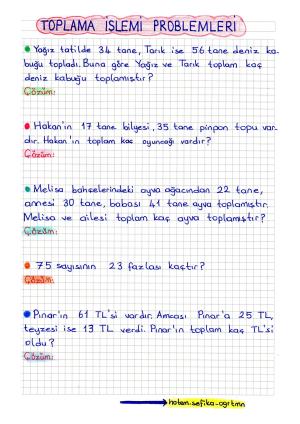 TOPLAMA İŞLEMİ PROBLEMLERİ
Yağız tatilde 34 tane, Tarık ise 56 tane deniz ka-
buğu topladı. Buna göre Yağız ve Tarık toplam kaç
deniz kabuğu toplamıştır?
Çözüm:
Hakan'ın 17 tane bilyesi, 35 tane pinpon topu var-
dır. Hakan'ın toplam kaç oyuncağı vardır?
Çözüm:
Melisa bahçelerindeki ayva ağacından 22 tane,
annesi 30 tane, babası 41 tane ayva toplamıştır.
Melisa ve ailesi toplam kaç ayva toplamıştır?
Çözüm:
75 sayısının 23 fazlası kaçtır?
Çözüm:
Pınar'ın 61 TL'si vardır. Amcası Pınar'a 25 TL,
teyzesi ise 13 TL verdi. Pınar'ın toplam kaç TL'si
oldu?
Çözüm:
hatem.sefika_ogrtmn